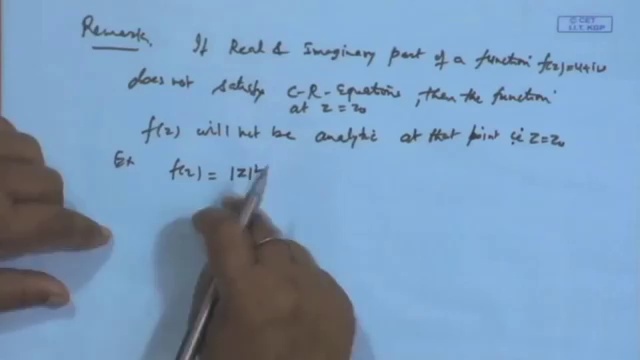 © CET
I.I.T. KGP
Remark. If Real & Imaginary part of a function f(z)=u+iv
does not satisfy C-R-Equations, then the function
at z=z₀
f(z) will not be analytic at that point i.e z=z₀
Ex f(z) = |z|²